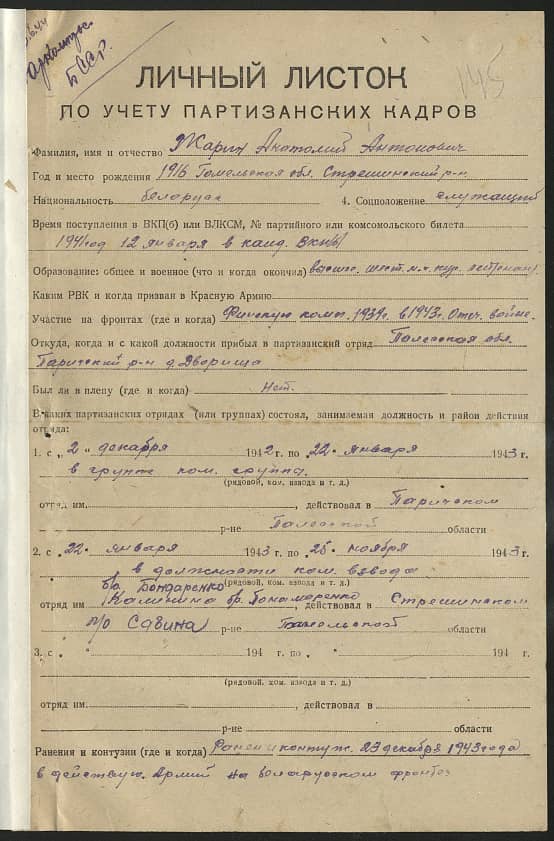 БССР.
145
ЛИЧНЫЙ ЛИСТОК
ПО УЧЕТУ ПАРТИЗАНСКИХ КАДРОВ
Фамилия, имя и отчество Анатолий Антонович
Год и место рождения 1916 Гомельская обл. Стрешинский р-н.
Национальность белорус 4. Соцположение служащий
Время поступления в ВКП(б) или ВЛКСМ, № партийного или комсомольского билета
12 января в канд. ВКП(б)
Образование: общее и военное (что и когда окончил)
Каким РВК и когда призван в Красную Армию
Участие на фронтах (где и когда) Финскую комп. 1939г. в 1943г. Отеч. войне.
Откуда, когда и с какой должности прибыл в партизанский отряд Полесская обл.
Паричский р-н д. Дворища
Был ли в плену (где и когда) Нет.
В каких партизанских отрядах (или группах) состоял, занимаемая должность и район действия
отряда:
1. с „2„ декабря 1942 г. по 22. января 1943 г.
в группе ком. группа.
(рядовой, ком. взвода и т. д.)
отряд им. , действовал в Паричском
р-не Полесской области
2. с 22. января 1943 г. по 25 ноября 1943 г.
в должности ком. взвода
(рядовой, ком. взвода и т. д.)
Бондаренко
отряд им. Калинина бр. Пономаренко , действовал в Стрешинском
п/о Савина р-не Гомельской области
3. с „ „ 194 г. по „ „ 194 г.
(рядовой, ком. взвода и т. д.)
отряд им. , действовал в
р-не области
Ранения и контузии (где и когда) Ранен и контуж. 23 декабря 1943 года
в действую. Армий на белорусском фронтов